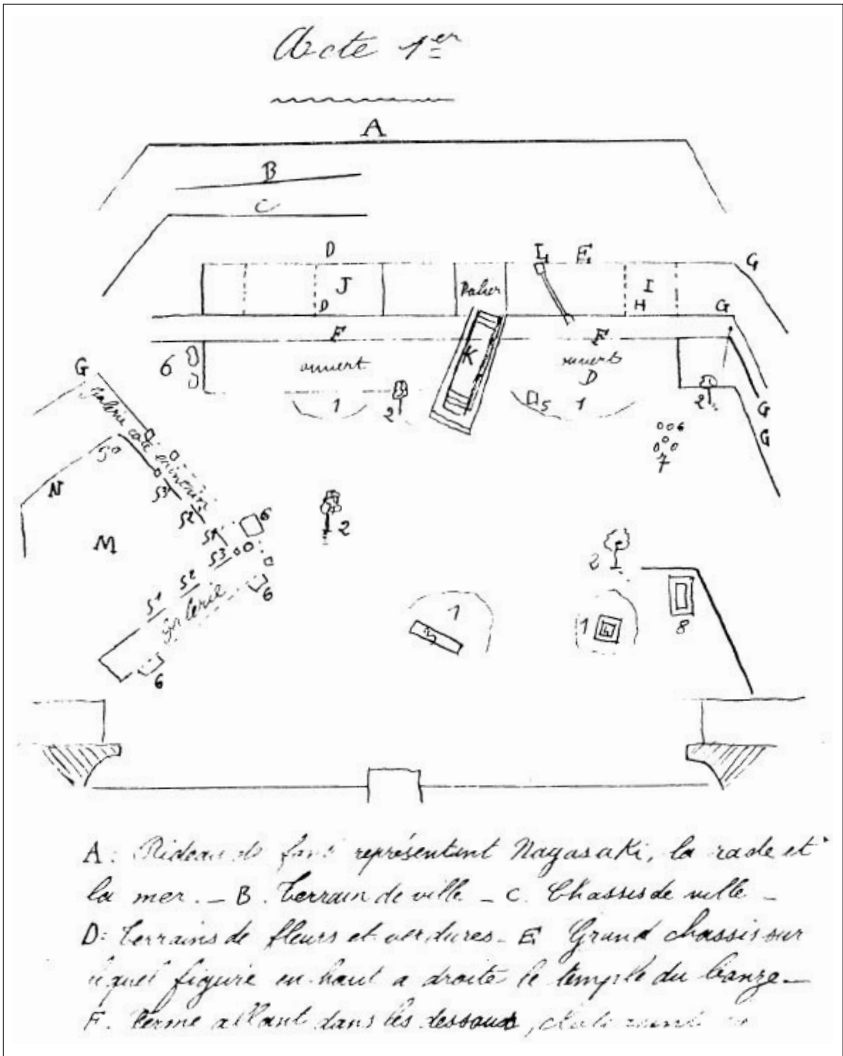 Acte 1er
A
B
C
D L E G
J Palier I
D H G
F F
6 ouvert K ouvert
D
G 1 2 5 1 2 G
G
galerie coté 7
N S3
M S2 2
S1 6
S3 2
S1 S2
Galerie 6 1 1 4 8
3
6
A: Rideau de fond représentent Nagasaki, la rade et
la mer. – B. Terrain de ville – C. Chassis de ville –
D: Terrains de fleurs et verdures – E Grand chassis sur
lequel figure en haut a droite le temple du bonze –
F. Ferme allant dans les dessous,